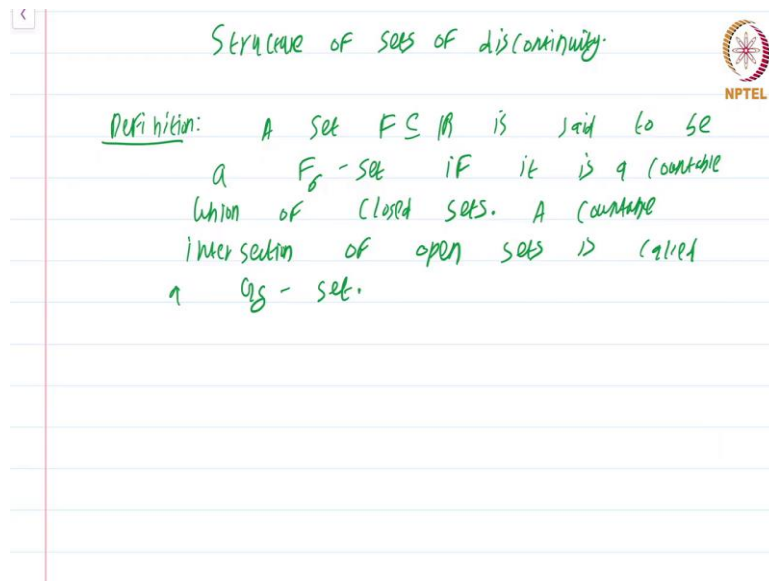 Structure of sets of discontinuity.
NPTEL
Definition: A set F ⊆ ℝ is said to be
a F_σ - set if it is a countable
union of closed sets. A countable
intersection of open sets is called
a G_δ - set.